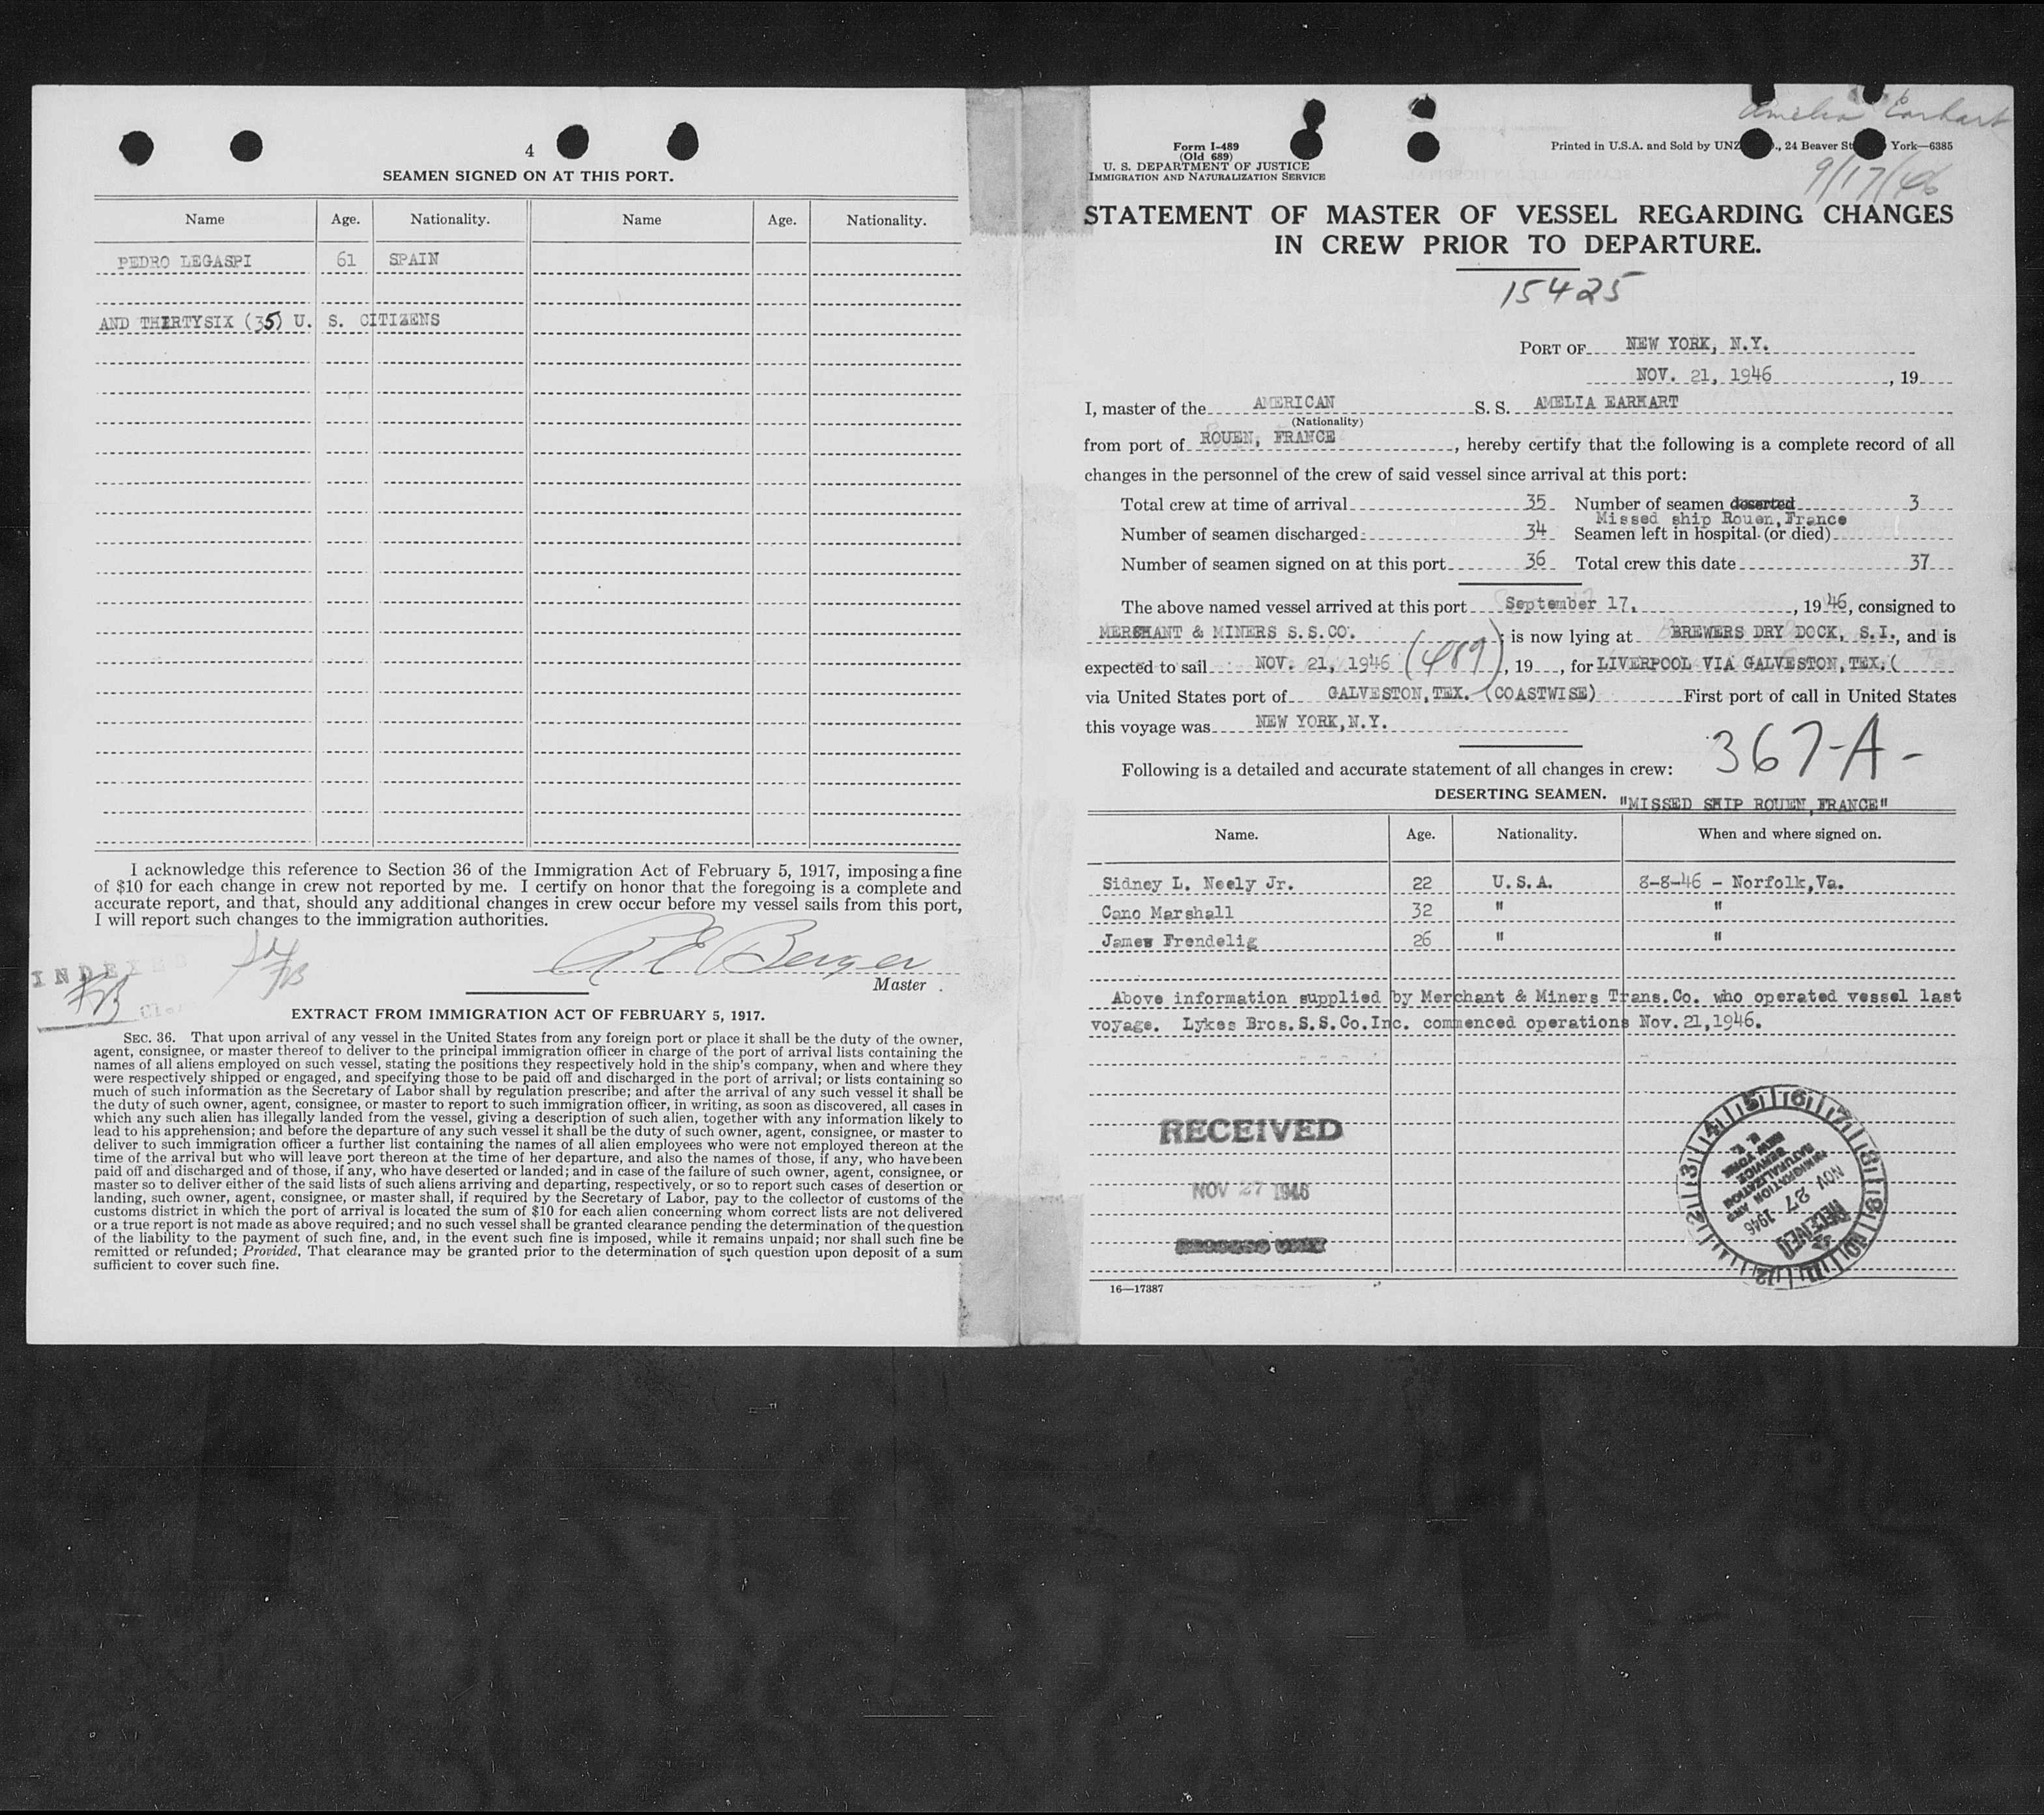 4
SEAMEN SIGNED ON AT THIS PORT.
Name Age. Nationality. Name Age. Nationality.
PEDRO LEGASPI 61 SPAIN
AND THIRTYSIX (35) U. S. CITIZENS
I acknowledge this reference to Section 36 of the Immigration Act of February 5, 1917, imposing a fine
of $10 for each change in crew not reported by me. I certify on honor that the foregoing is a complete and
accurate report, and that, should any additional changes in crew occur before my vessel sails from this port,
I will report such changes to the immigration authorities.
R E Berger
Master .
INDEXED
EXTRACT FROM IMMIGRATION ACT OF FEBRUARY 5, 1917.
SEC. 36. That upon arrival of any vessel in the United States from any foreign port or place it shall be the duty of the owner,
agent, consignee, or master thereof to deliver to the principal immigration officer in charge of the port of arrival lists containing the
names of all aliens employed on such vessel, stating the positions they respectively hold in the ship's company, when and where they
were respectively shipped or engaged, and specifying those to be paid off and discharged in the port of arrival; or lists containing so
much of such information as the Secretary of Labor shall by regulation prescribe; and after the arrival of any such vessel it shall be
the duty of such owner, agent, consignee, or master to report to such immigration officer, in writing, as soon as discovered, all cases in
which any such alien has illegally landed from the vessel, giving a description of such alien, together with any information likely to
lead to his apprehension; and before the departure of any such vessel it shall be the duty of such owner, agent, consignee, or master to
deliver to such immigration officer a further list containing the names of all alien employees who were not employed thereon at the
time of the arrival but who will leave port thereon at the time of her departure, and also the names of those, if any, who have been
paid off and discharged and of those, if any, who have deserted or landed; and in case of the failure of such owner, agent, consignee, or
master so to deliver either of the said lists of such aliens arriving and departing, respectively, or so to report such cases of desertion or
landing, such owner, agent, consignee, or master shall, if required by the Secretary of Labor, pay to the collector of customs of the
customs district in which the port of arrival is located the sum of $10 for each alien concerning whom correct lists are not delivered
or a true report is not made as above required; and no such vessel shall be granted clearance pending the determination of the question
of the liability to the payment of such fine, and, in the event such fine is imposed, while it remains unpaid; nor shall such fine be
remitted or refunded; Provided, That clearance may be granted prior to the determination of such question upon deposit of a sum
sufficient to cover such fine.
Amelia Earhart
9/17/46
Form I-489
(Old 689)
U. S. DEPARTMENT OF JUSTICE
IMMIGRATION AND NATURALIZATION SERVICE
Printed in U.S.A. and Sold by UNZ , 24 Beaver St York—6385
STATEMENT OF MASTER OF VESSEL REGARDING CHANGES
IN CREW PRIOR TO DEPARTURE.
15425
PORT OF NEW YORK, N.Y.
NOV. 21, 1946 , 19
I, master of the AMERICAN S. S. AMELIA EARHART
(Nationality)
from port of ROUEN, FRANCE , hereby certify that the following is a complete record of all
changes in the personnel of the crew of said vessel since arrival at this port:
Total crew at time of arrival 35 Number of seamen deserted 3
Missed ship Rouen, France
Number of seamen discharged 34 Seamen left in hospital (or died)
Number of seamen signed on at this port 36 Total crew this date 37
The above named vessel arrived at this port September 17, , 1946, consigned to
MERCHANT & MINERS S.S.CO. ; is now lying at BREWERS DRY DOCK, S.I., and is
expected to sail NOV. 21, 1946 (489) , 19 , for LIVERPOOL VIA GALVESTON, TEX. (
via United States port of GALVESTON, TEX. (COASTWISE) First port of call in United States
this voyage was NEW YORK, N.Y.
367-A-
Following is a detailed and accurate statement of all changes in crew:
DESERTING SEAMEN. "MISSED SHIP ROUEN, FRANCE"
Name. Age. Nationality. When and where signed on.
Sidney L. Neely Jr. 22 U.S.A. 8-8-46 - Norfolk, Va.
Cano Marshall 32 " "
James Frendelig 26 " "
Above information supplied by Merchant & Miners Trans. Co. who operated vessel last
voyage. Lykes Bros. S.S. Co. Inc. commenced operations Nov. 21, 1946.
RECEIVED
NOV 27 1946
RECORDS UNIT
RECEIVED
NOV 27 1946
IMMIGRATION AND
NATURALIZATION
SERVICE
NEW YORK
N. Y.
1 2 3 4 5 6 7 8 9 10 11 12
16—17387